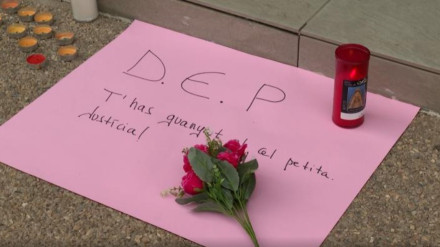 D.E.P
T'has guanyat el cel petita.
Justicia!